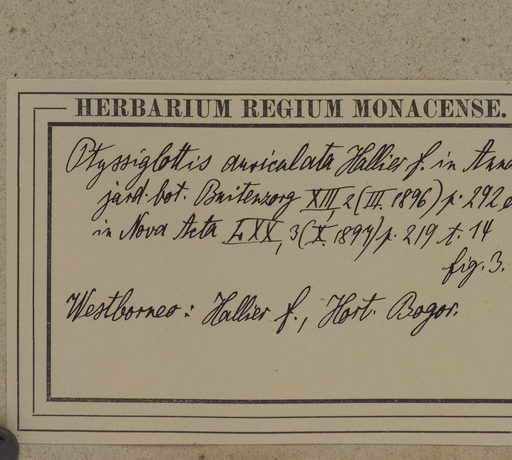 HERBARIUM REGIUM MONACENSE.
Ptyssiglottis auriculata Hallier f. in Anna
jard. bot. Buitenzorg XIII, 2 (III. 1896) p. 292 e
in Nova Acta LXX, 3 (X. 1897) p. 219 t. 14
fig. 3.
Westborneo: Hallier f., Hort. Bogor.